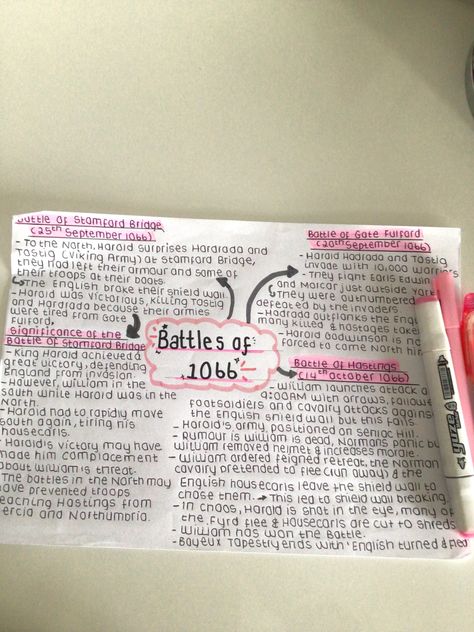 Battle of Stamford Bridge
(25th September 1066)
- To the North, Harald surprises Hardrada and
Tostig (Viking Army) at Stamford Bridge,
they had left their armour and some of
their troops at the boats.
The English brake their shield wall
- Harald was victorious, killing Tostig
and Hardrada because their armies
were tired from Gate
Fulford.
Significance of the
Battle of Stamford Bridge
- King Harald achieved a
great victory, defending
England from invasion.
- However, William in the
South while Harald was in the
North.
- Harald had to rapidly move
south again, tiring his
housecarls.
- Harald's victory may have
made him complacement
about William is threat.
- The battles in the North may
have prevented troops
reaching Hastings from
Mercia and Northumbria.
Battles of
1066
Battle of Gate Fulford
(20th September 1066)
- Harald Hadrada and Tostig
invade with 10,000 warriors
- They fight Earls Edwin
and Morcar, just outside York
- They were outnumbered
defeated by the invaders.
- Hadrada outflanks the English
many killed & hostages taken
- Harold Godwinson is no
forced to came North
Battle of Hastings
(14th October 1066)
- William launches attack a
9:00AM with arrows, follow
footsoldiers and cavalry attacks against
the English shield wall but this fails.
- Harald's army, positioned on Senlac Hill.
- Rumour is William is dead, Normans panic bu
William removed helmet & increases morale.
- William ordered feigned retreat, the Norman
cavalry pretended to flee (run away) & the
English housecarls leave the shield wall to
chase them. → This led to shield wall breaking
- In chaos, Harald is shot in the eye, many of
the Fyrd flee & Housecarls are cut to shreds
- William has won the Battle.
- Bayeux Tapestry ends with 'English turned & fled